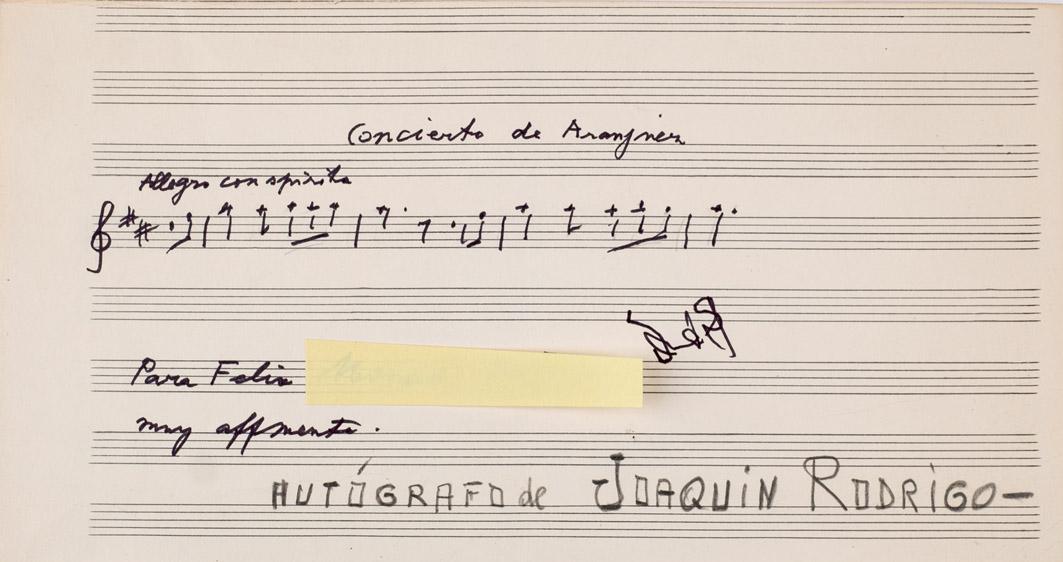 Concierto de Aranjuez
Allegro con spirito
Para Felix
muy affmente.
AUTÓGRAFO de JOAQUIN RODRIGO—